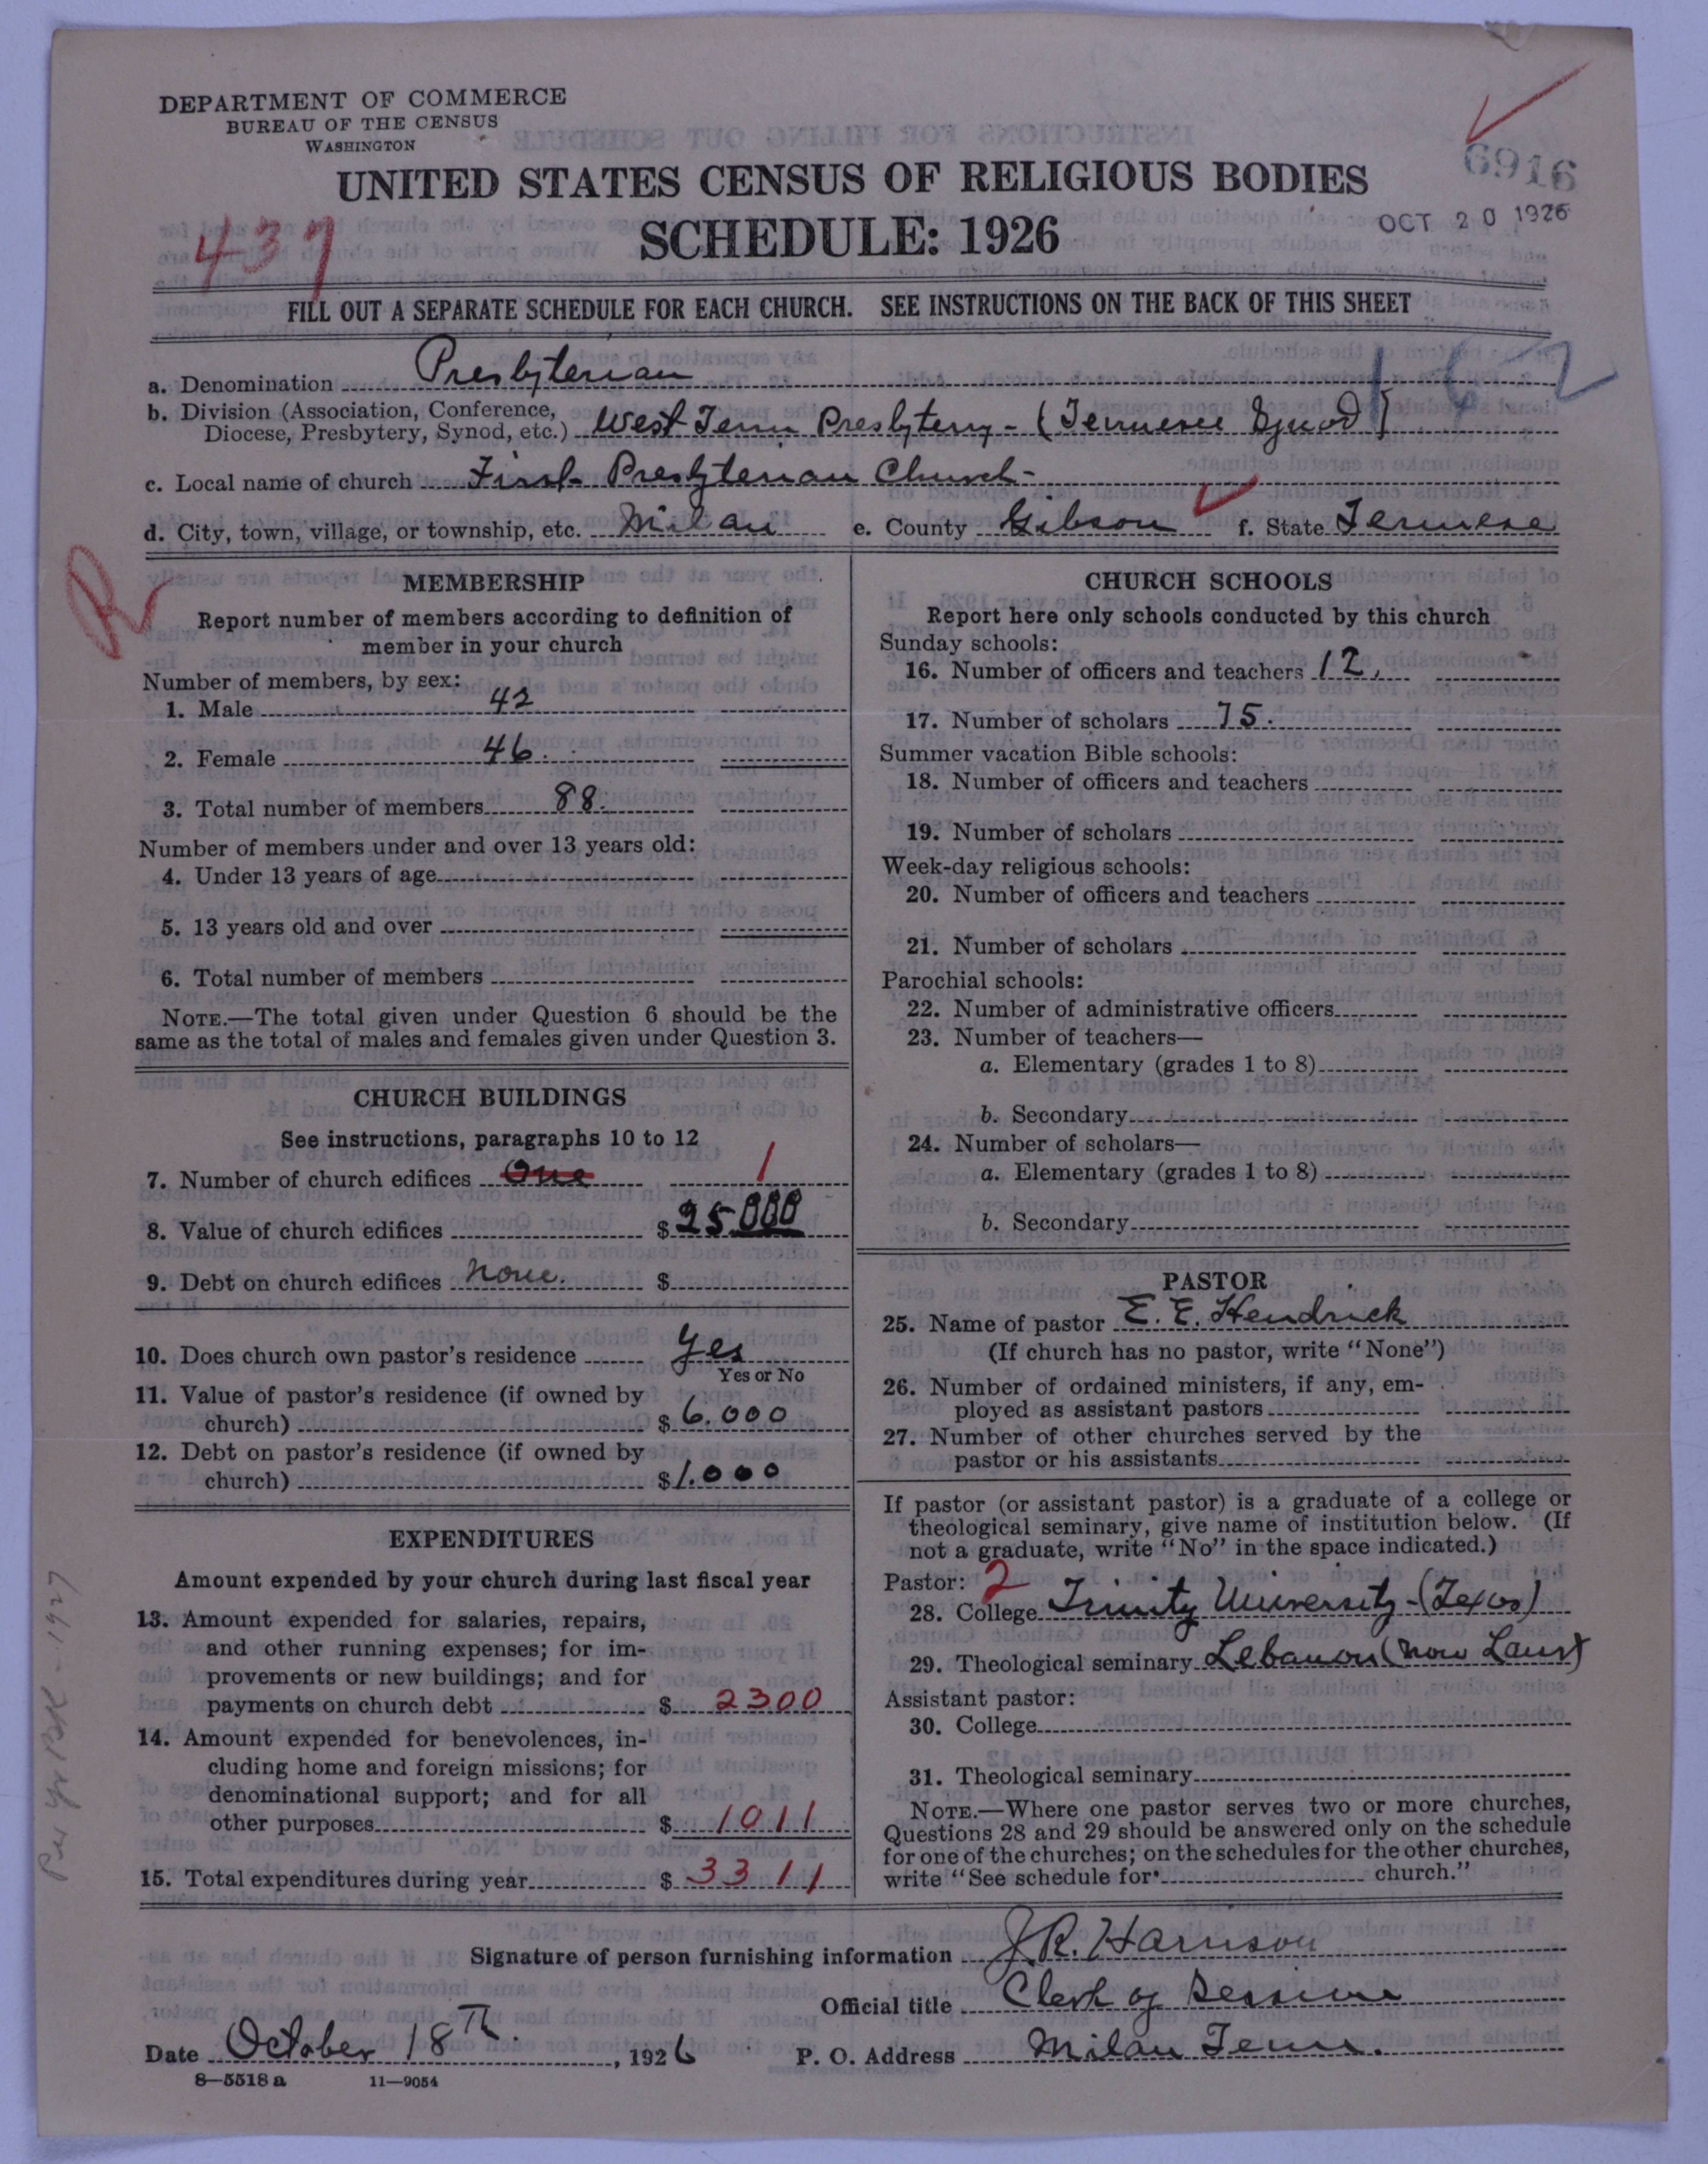 DEPARTMENT OF COMMERCE
BUREAU OF THE CENSUS
WASHINGTON
6916
UNITED STATES CENSUS OF RELIGIOUS BODIES
437
SCHEDULE: 1926
OCT 20 1926
FILL OUT A SEPARATE SCHEDULE FOR EACH CHURCH. SEE INSTRUCTIONS ON THE BACK OF THIS SHEET
162
a. Denomination Presbyterian
b. Division (Association, Conference,
Diocese, Presbytery, Synod, etc.) West Tenn Presbytery - (Tennessee Synod)
c. Local name of church First Presbyterian Church -
d. City, town, village, or township, etc. Milan e. County Gibson f. State Tennessee
R
MEMBERSHIP
Report number of members according to definition of
member in your church
Number of members, by sex:
1. Male 42
2. Female 46.
3. Total number of members 88.
Number of members under and over 13 years old:
4. Under 13 years of age
5. 13 years old and over
6. Total number of members
NOTE.—The total given under Question 6 should be the
same as the total of males and females given under Question 3.
CHURCH BUILDINGS
See instructions, paragraphs 10 to 12
7. Number of church edifices One 1
8. Value of church edifices $ 25000
9. Debt on church edifices none. $
10. Does church own pastor's residence Yes
Yes or No
11. Value of pastor's residence (if owned by
church) $ 6.000
12. Debt on pastor's residence (if owned by
church) $ 1.000
EXPENDITURES
Amount expended by your church during last fiscal year
13. Amount expended for salaries, repairs,
and other running expenses; for im-
provements or new buildings; and for
payments on church debt $ 2300
14. Amount expended for benevolences, in-
cluding home and foreign missions; for
denominational support; and for all
other purposes $ 1011
15. Total expenditures during year $ 3311
Per Yr Bk - 1927
CHURCH SCHOOLS
Report here only schools conducted by this church
Sunday schools:
16. Number of officers and teachers 12.
17. Number of scholars 75.
Summer vacation Bible schools:
18. Number of officers and teachers
19. Number of scholars
Week-day religious schools:
20. Number of officers and teachers
21. Number of scholars
Parochial schools:
22. Number of administrative officers
23. Number of teachers—
a. Elementary (grades 1 to 8)
b. Secondary
24. Number of scholars—
a. Elementary (grades 1 to 8)
b. Secondary
PASTOR
25. Name of pastor E. E. Hendrick
(If church has no pastor, write "None")
26. Number of ordained ministers, if any, em-
ployed as assistant pastors
27. Number of other churches served by the
pastor or his assistants
If pastor (or assistant pastor) is a graduate of a college or
theological seminary, give name of institution below. (If
not a graduate, write "No" in the space indicated.)
Pastor: 2
28. College Trinity University - (Texas)
29. Theological seminary Lebanon (now
Assistant pastor:
30. College
31. Theological seminary
NOTE.—Where one pastor serves two or more churches,
Questions 28 and 29 should be answered only on the schedule
for one of the churches; on the schedules for the other churches,
write "See schedule for church."
Signature of person furnishing information J. R. Harrison
Official title Clerk of Session
Date October 18th., 1926 P. O. Address Milan Tenn.
8—5518 a 11—9054